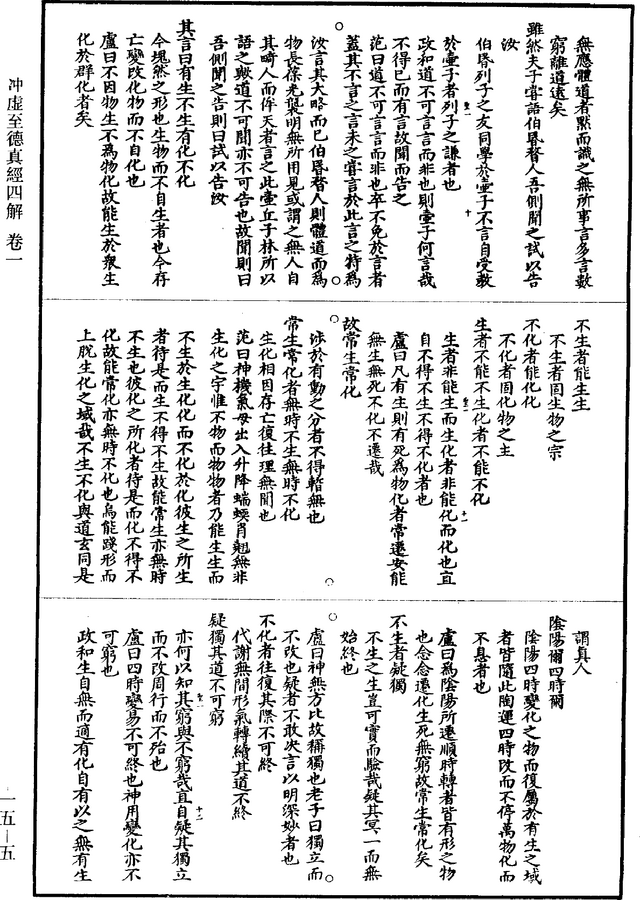 無應體道者黙而識之無所事言多言數
窮離道遠矣
雖然夫子嘗語伯昬瞀人吾側聞之試以告
汝
伯昬列子之友同學於壷子不言自受教
於壷子者列子之謙者也
政和道不可言言而非也則壷子何言哉
不得已而有言故聞而告之
范曰道不可言言而非也卒不免於言者
蓋其不言之言未之嘗言於此言之特爲
汝言其大略而已伯昬瞀人則體道而爲
物長葆光襲明無所用見或謂之無人自
其畸人而侔天者言之此壷丘子林所以
語之歟道不可聞亦不可告也故聞則曰
吾側聞之告則曰試以告汝
其言曰有生不生有化不化
今塊然之形也生物而不自生者也今存
亡變改化物而不自化也
盧曰不因物生不爲物化故能生於衆生
化於群化者矣
不生者能生生
不生者固生物之宗
不化者能化化
不化者固化物之主
生者不能不生化者不能不化
生者非能生而生化者非能化而化也直
自不得不生不得不化者也
盧曰凡有生則有死爲物化者常遷安能
無生無死不化不遷哉
故常生常化
涉於有動之分者不得暫無也
常生常化者無時不生無時不化
生化相因存亡復往理無間也
范曰神機氣母出入升降蝡蝡肖翹無非
生化之宇惟不物而物物者乃能生生而
不生於生化化而不化於化彼生之所生
者待是而生不得不生故能常生亦無時
不生也彼化之所化者待是而化不得不
化故能常化亦無時不化也烏能踐形而
上脱生化之域哉不生不化與道玄同是
謂真人
陰陽爾四時爾
陰陽四時變化之物而復屬於有生之域
者皆隨此陶運四時改而不停萬物化而
不息者也
盧曰爲陰陽所遷順時轉者皆有形之物
也念念遷化生死無窮故常生常化矣
不生者疑獨
不生之生豈可實而驗哉疑其冥一而無
始終也
盧曰神無方比故稱獨也老子曰獨立而
不改也疑者不敢决言以明深妙者也
不化者往復其際不可終
代謝無間形氣轉續其道不終
疑獨其道不可窮
亦何以知其窮與不窮哉直自疑其獨立
而不改周行而不殆也
盧曰四時變易不可終也神用變化亦不
可窮也
政和生自無而適有化自有以之無有生
沖虛至德真經四解 卷一
一五—五